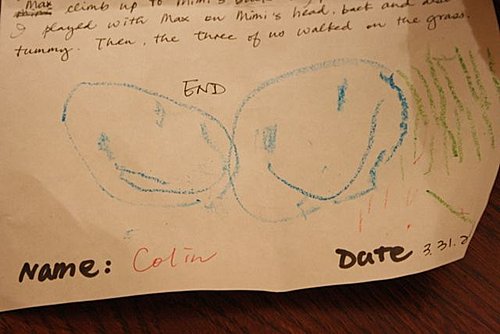 Max climb up to Mimi's
I played with Max on Mimi's head, back and also
tummy. Then, the three of us walked on the grass.
END
Name: Colin
Date 3.31.2